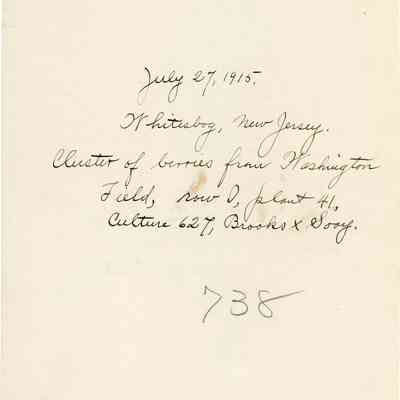 July 27, 1915.
Whitesbog, New Jersey.
Cluster of berries from Washington
Field, row D, plant 41,
Culture 627, Brooks x Sooy.
738